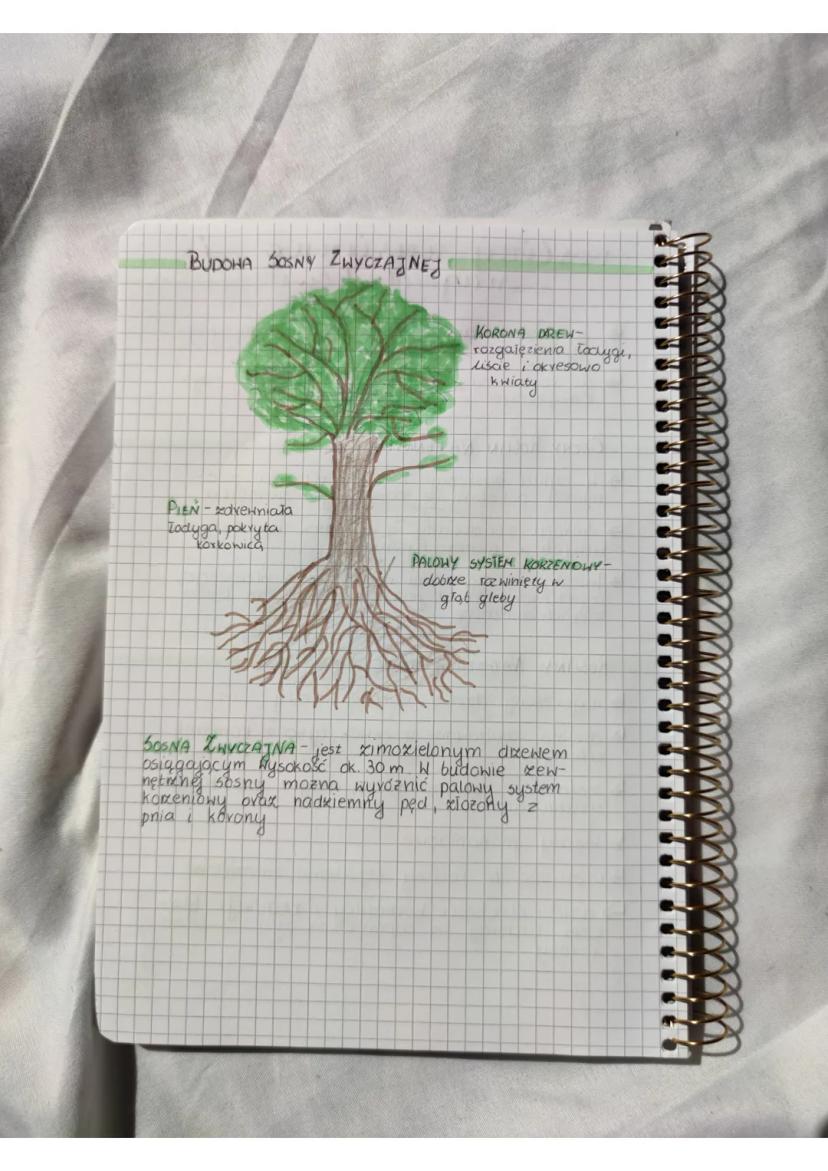 BUDOWA SOSNY ZWYCZAJNEJ
KORONA DRZEW-
rozgałęzienia łodygi,
liście i okresowo
kwiaty
PIEŃ - zdrewniała
łodyga, pokryta
korkowicą
PALOWY SYSTEM KORZENIOWY-
dobrze rozwinięty w
głąb gleby
SOSNA ZWYCZAJNA - jest zimozielonym drzewem
osiągającym wysokość ok. 30 m. W budowie zew-
nętrznej sosny można wyróżnić palowy system
korzeniowy oraz nadziemny pęd, złożony z
pnia i korony